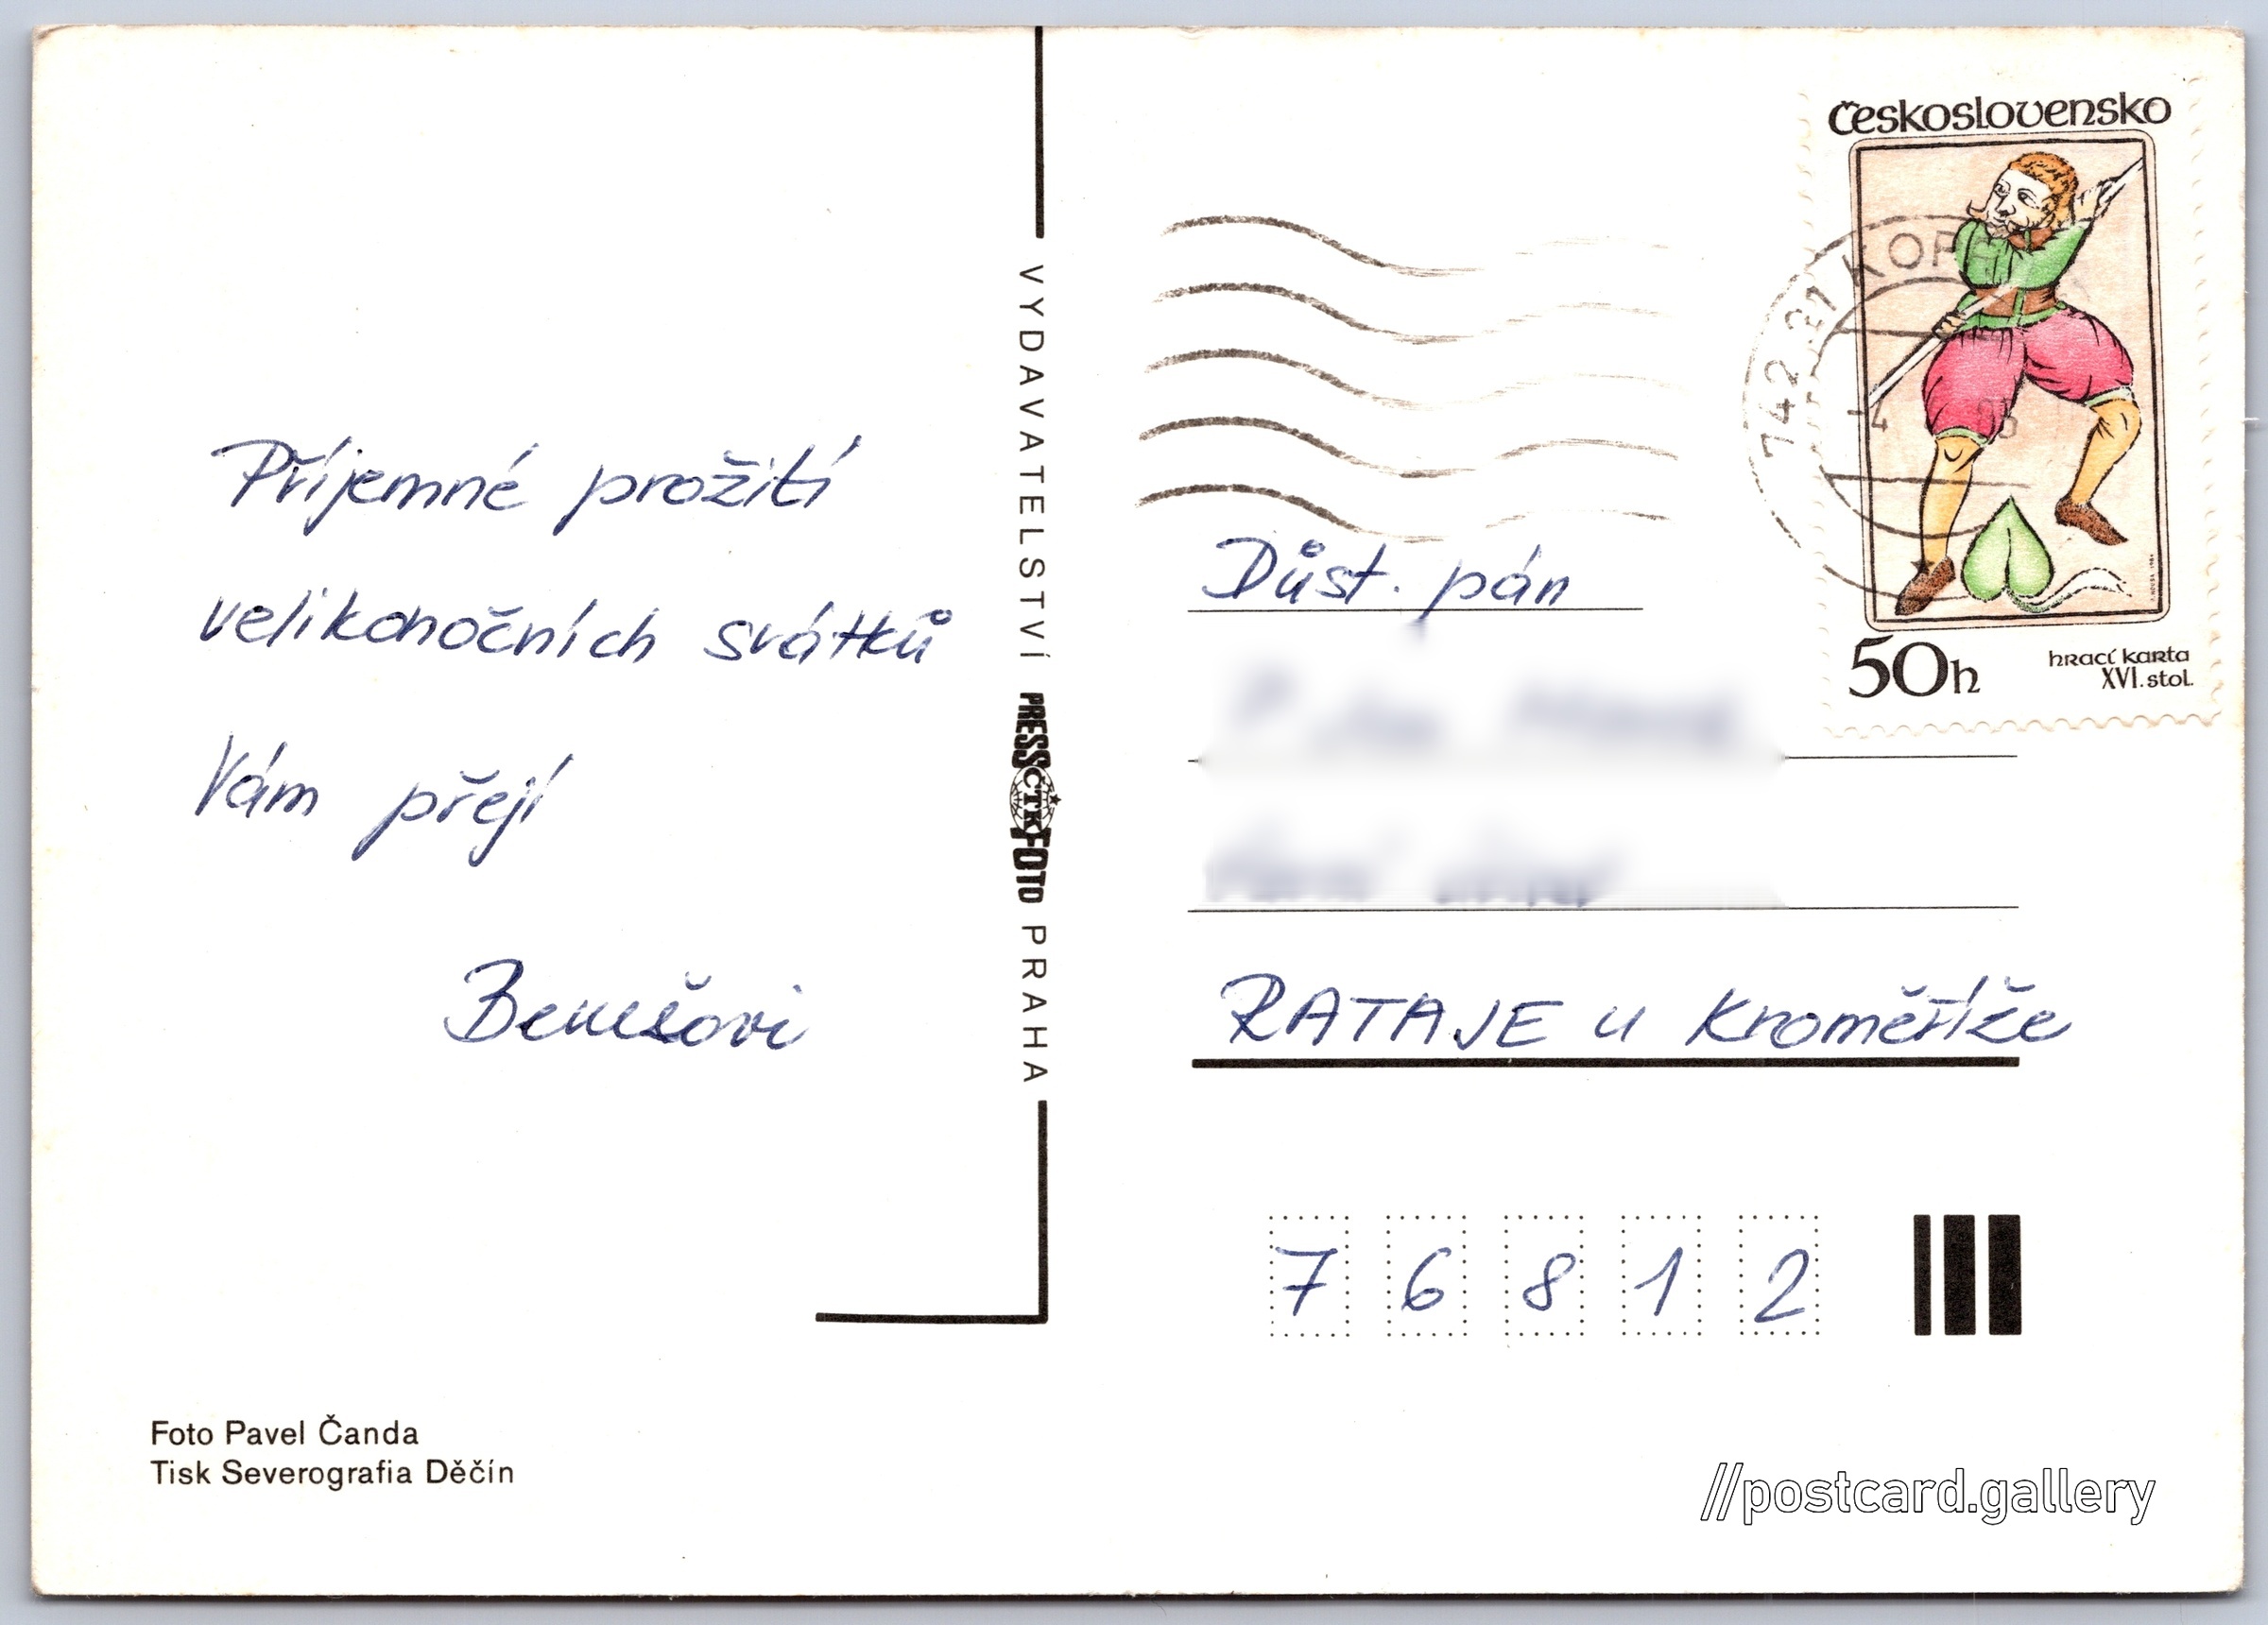 Příjemné prožití
velikonočních svátků
Vám přejí
Benešovi
Foto Pavel Čanda
Tisk Severografia Děčín
VYDAVATELSTVÍ PRESSFOTO PRAHA
ČTK
Československo
50h
hrací karta
XVI. stol.
742 21
Důst. pán
RATAJE u Kroměříže
7 6 8 1 2
//postcard.gallery